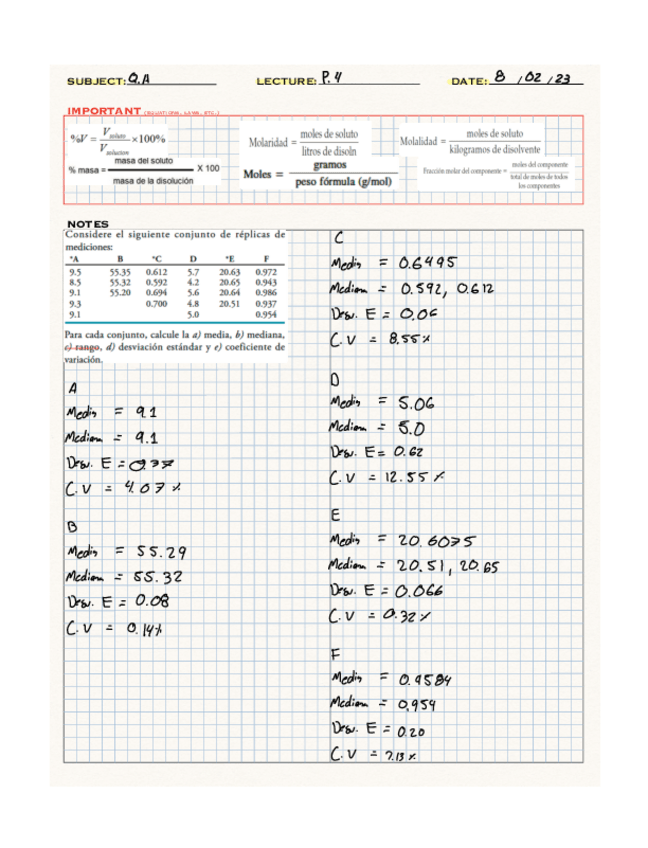 SUBJECT: Q.A LECTURE: P. 4 DATE: 8 / 02 / 23
IMPORTANT (EQUATIONS, LAWS, ETC.)
%V = V soluto / V solucion ×100%
% masa = masa del soluto / masa de la disolución X 100
Molaridad = moles de soluto / litros de disoln
Moles = gramos / peso fórmula (g/mol)
Molalidad = moles de soluto / kilogramos de disolvente
Fracción molar del componente = moles del componente / total de moles de todos los componentes
NOTES
Considere el siguiente conjunto de réplicas de
mediciones:
*A B *C D *E F
9.5 55.35 0.612 5.7 20.63 0.972
8.5 55.32 0.592 4.2 20.65 0.943
9.1 55.20 0.694 5.6 20.64 0.986
9.3 0.700 4.8 20.51 0.937
9.1 5.0 0.954
Para cada conjunto, calcule la a) media, b) mediana,
c) rango, d) desviación estándar y e) coeficiente de
variación.
A
Media = 9.1
Mediana = 9.1
Desv. E = 0.37
C.V = 4.07 %
B
Media = 55.29
Mediana = 55.32
Desv. E = 0.08
C.V = 0.14%
C
Media = 0.6495
Mediana = 0.592, 0.612
Desv. E = 0.06
C.V = 8.55%
D
Media = 5.06
Mediana = 5.0
Desv. E = 0.62
C.V = 12.55 %
E
Media = 20.6075
Mediana = 20.51, 20.65
Desv. E = 0.066
C.V = 0.32%
F
Media = 0.9584
Mediana = 0.954
Desv. E = 0.20
C.V = 2.13 %